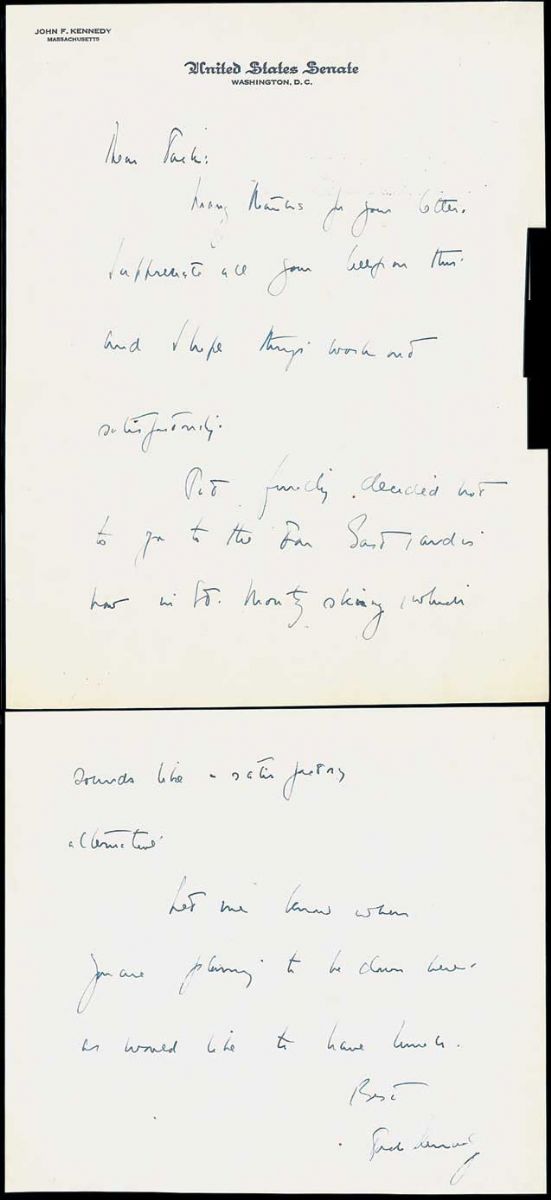 JOHN F. KENNEDY
MASSACHUSETTS
United States Senate
WASHINGTON, D.C.
Dear
Many thanks for your letter.
I appreciate all your help on this
and I hope things work out
satisfactorily.
Pat finally decided not
to go to the Far East, and is
now in St. Moritz skiing, which
sounds like a satisfactory
alternative.
Let me know when
you are planning to be down here
as would like to have lunch.
Best
Jack Kennedy